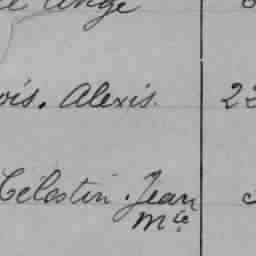 Ange
ois. Alexis. 22
Celestin. Jean
Mie